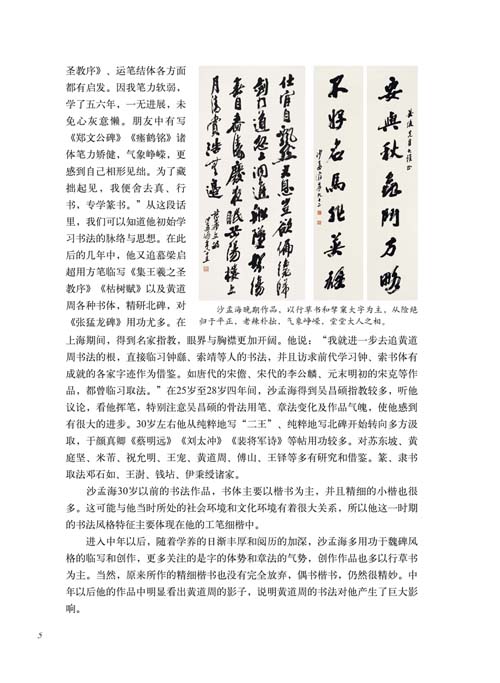 圣教序》、运笔结体各方面
都有启发。因我笔力软弱，
学了五六年，一无进展，未
免心灰意懒。朋友中有写
《郑文公碑》《瘗鹤铭》诸
体笔力矫健，气象峥嵘，更
感到自己相形见绌。为了藏
拙起见，我便舍去真、行
书，专学篆书。”从这段话
里，我们可以知道他初始学
习书法的脉络与思想。在此
后的几年中，他又追慕梁启
超用方笔临写《集王羲之圣
教序》《枯树赋》以及黄道
周各种书体，精研北碑，对
《张猛龙碑》用功尤多。在
安与秋虫斗方略
不好名马非英雄
沙孟海晚期作品。以行草书和擘窠大字为主，从险绝
归于平正，老辣朴拙，气象峥嵘，堂堂大人之相。
上海期间，得到名家指教，眼界与胸襟更加开阔。他说：“我就进一步去追黄道
周书法的根，直接临习钟繇、索靖等人的书法，并且访求前代学习钟、索书体有
成就的各家字迹作为借鉴。如唐代的宋儋、宋代的李公麟、元末明初的宋克等作
品，都曾临习取法。”在25岁至28岁四年间，沙孟海得吴昌硕指教较多，听他
议论，看他挥笔，特别注意吴昌硕的骨法用笔、章法变化及作品气魄，使他感到
有很大的进步。30岁左右他从纯粹地写“二王”、纯粹地写北碑开始转向多方汲
取，于颜真卿《蔡明远》《刘太冲》《裴将军诗》等帖用功较多。对苏东坡、黄
庭坚、米芾、祝允明、王宠、黄道周、傅山、王铎等多有研究和借鉴。篆、隶书
取法邓石如、王澍、钱坫、伊秉绶诸家。
沙孟海30岁以前的书法作品，书体主要以楷书为主，并且精细的小楷也很
多。这可能与他当时所处的社会环境和文化环境有着很大关系，所以他这一时期
的书法风格特征主要体现在他的工笔细楷中。
进入中年以后，随着学养的日渐丰厚和阅历的加深，沙孟海多用功于魏碑风
格的临写和创作，更多关注的是字的体势和章法的气势，创作作品也多以行草书
为主。当然，原来所作的精细楷书也没有完全放弃，偶书楷书，仍然很精妙。中
年以后他的作品中明显看出黄道周的影子，说明黄道周的书法对他产生了巨大影
响。
5